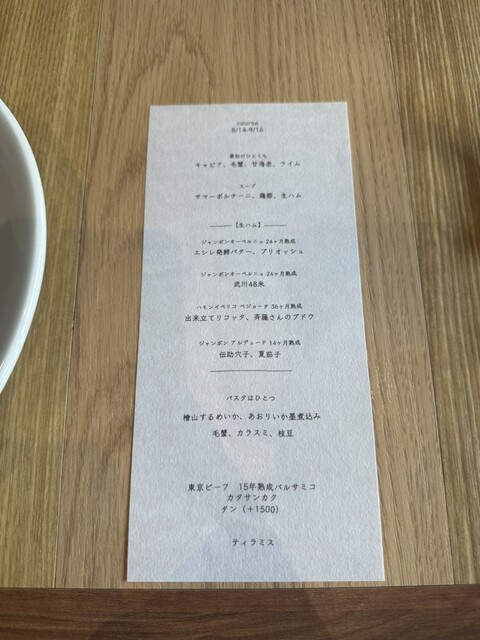 course
8/14-9/16
最初のひとくち
キャビア、毛蟹、甘海老、ライム
スープ
サマーポルチーニ、鶏節、生ハム
【生ハム】
ジャンボンオーベルニュ 24ヶ月熟成
エシレ発酵バター、ブリオッシュ
ジャンボンオーベルニュ 24ヶ月熟成
武川48米
ハモンイベリコ ベジョータ 36ヶ月熟成
出来立てリコッタ、斉藤さんのブドウ
ジャンボン アルデュード 14ヶ月熟成
伝助穴子、夏茄子
パスタはひとつ
檜山するめいか、あおりいか墨煮込み
毛蟹、カラスミ、枝豆
東京ビーフ 15年熟成バルサミコ
カタサンカク
タン（＋1500）
ティラミス